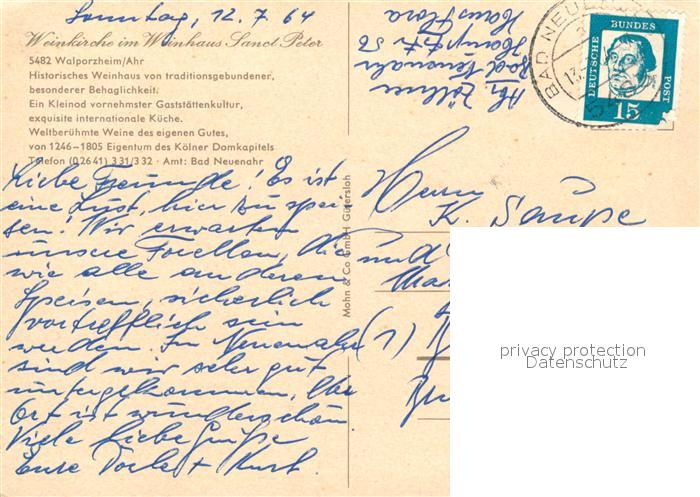 Sonntag, 12.7.64
Weinkirche im Weinhaus Sanct Peter
5482 Walporzheim/Ahr
Historisches Weinhaus von traditionsgebundener,
besonderer Behaglichkeit.
Ein Kleinod vornehmster Gaststättenkultur,
exquisite internationale Küche.
Weltberühmte Weine des eigenen Gutes,
von 1246–1805 Eigentum des Kölner Domkapitels
Telefon (02641) 331/332 · Amt: Bad Neuenahr
Liebe Freunde! Es ist
eine Lust, hier zu spei-
sen! Wir erwarten
unsere Forellen, die
wie alle anderen
Speisen, sicherlich
vortrefflich sein
werden. In Neuenahr
sind wir sehr gut
untergekommen, der
Ort ist wunderschön.
Viele liebe Grüße
Eure + Kurt.
Mohn & Co GmbH Gütersloh
Abs. Zöllner
Bad Neuenahr
Hauptstr. 56
Haus Flora
BAD NEUE
DEUTSCHE
BUNDES
POST
15
Herrn
K. Saupe
und
(1)
privacy protection
Datenschutz